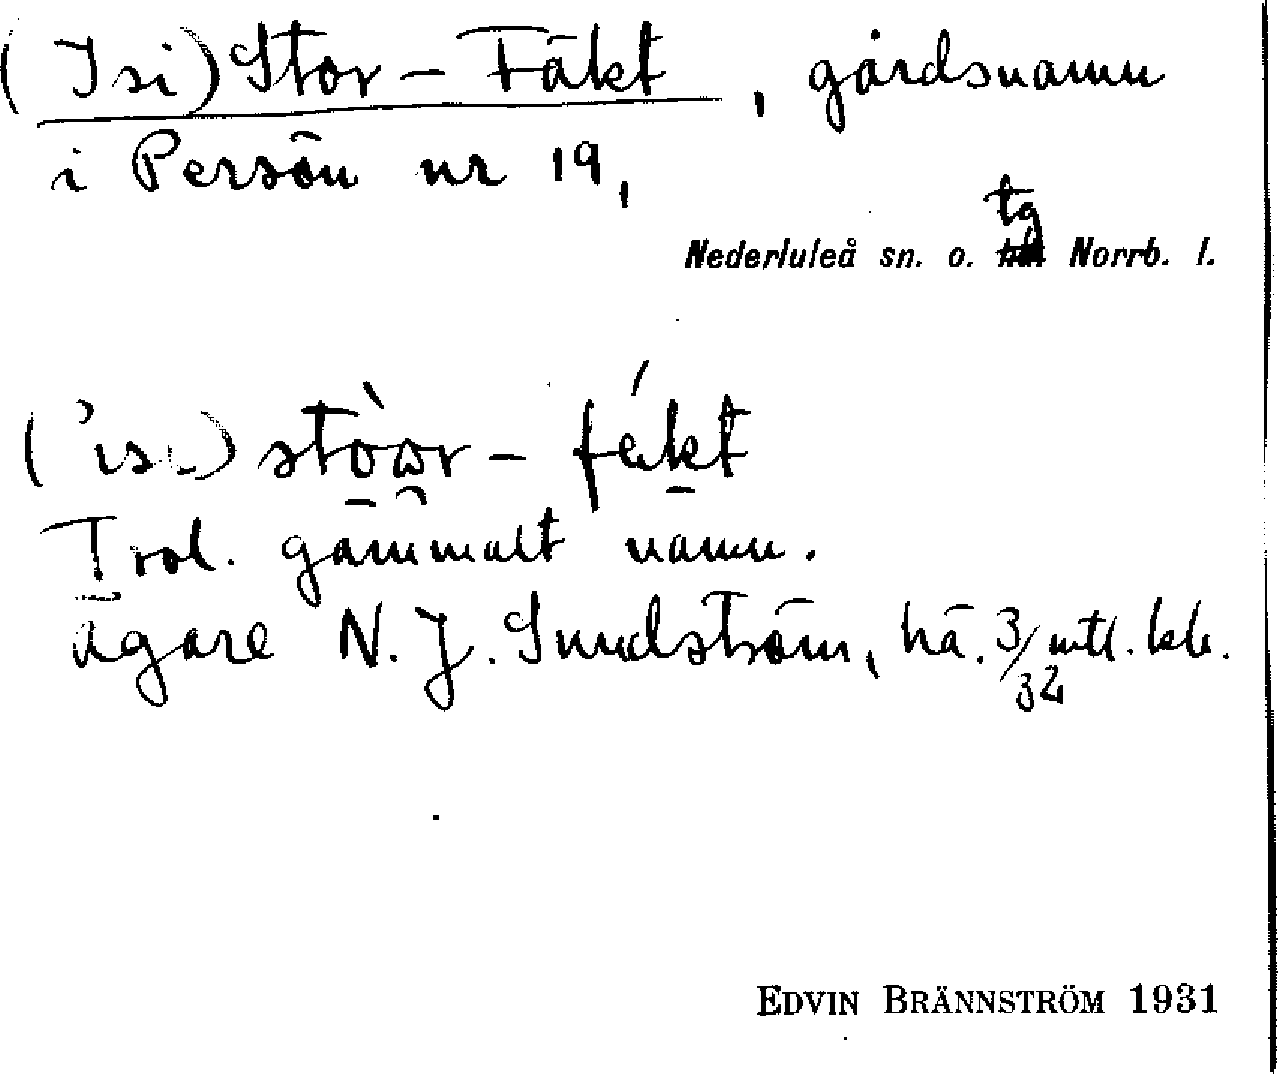 (Isi) Stor-Fäkt, gårdsnamn
i Persön nr 19,
tg
Nederluleå sn. o. Norrb. l.
stòωr-fékt
Trol. gammalt namn.
ägare N. J. Sundström, hä. 3/32 mtl. kr.
EDVIN BRÄNNSTRÖM 1931